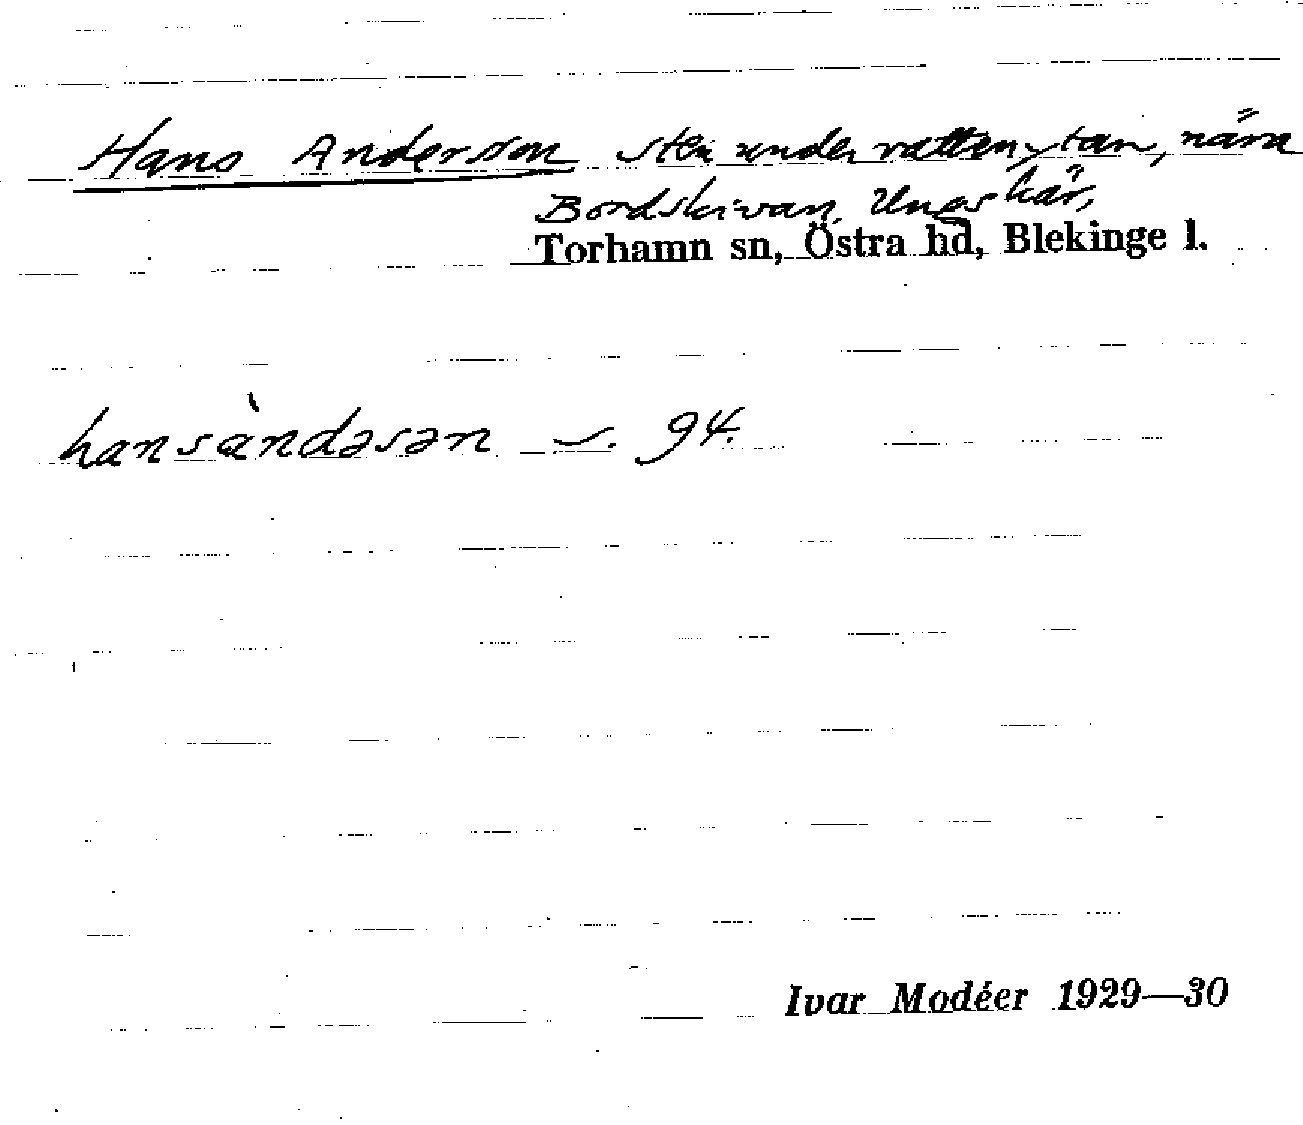 Hans Andersson sten under vattenytan, nära
Bordskivan, Ungskär,
Torhamn sn, Östra hd, Blekinge l.
hansàndəsən S. 94.
Ivar Modéer 1929—30